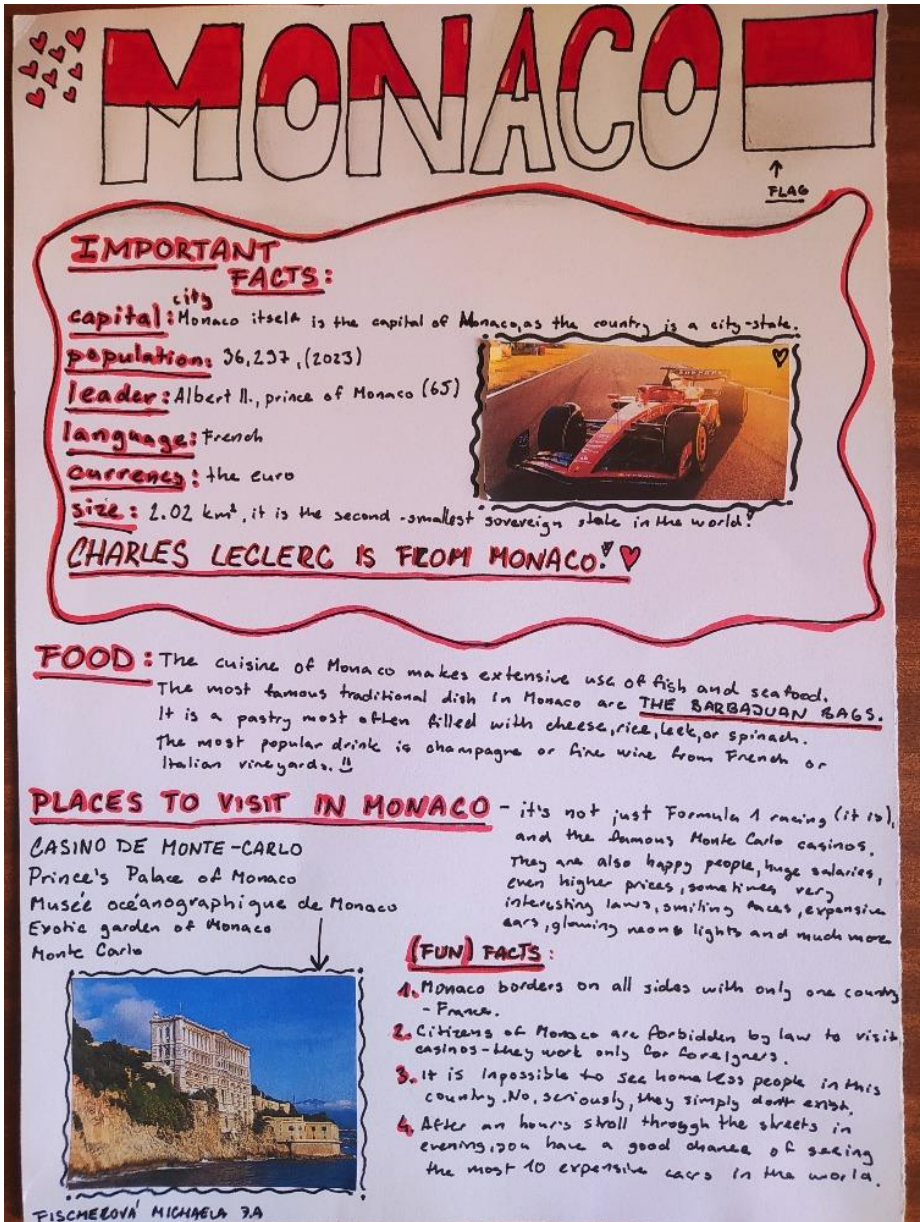 MONACO
FLAG
IMPORTANT
FACTS:
city
capital: Monaco itself is the capital of Monaco, as the country is a city-state.
population: 36,297, (2023)
leader: Albert II., prince of Monaco (65)
language: French
currency: the euro
size: 2.02 km², it is the second-smallest sovereign state in the world!
CHARLES LECLERC IS FROM MONACO!
FOOD: The cuisine of Monaco makes extensive use of fish and seafood.
The most famous traditional dish in Monaco are THE BARBAJUAN BAGS.
It is a pastry most often filled with cheese, rice, leek, or spinach.
The most popular drink is champagne or fine wine from French or
Italian vineyards.
PLACES TO VISIT IN MONACO - it's not just Formula 1 racing (it is),
and the famous Monte Carlo casinos.
They are also happy people, huge salaries,
even higher prices, sometimes very
interesting laws, smiling faces, expensive
cars, glowing neons lights and much more
CASINO DE MONTE-CARLO
Prince's Palace of Monaco
Musée océanographique de Monaco
Exotic garden of Monaco
Monte Carlo
(FUN) FACTS:
1. Monaco borders on all sides with only one country
- France.
2. Citizens of Monaco are forbidden by law to visit
casinos - they work only for foreigners.
3. It is inpossible to see homeless people in this
country. No, seriously, they simply don't exist.
4. After an hour's stroll through the streets in
evening, you have a good chance of seeing
the most 10 expensive cars in the world.
FISCHEROVÁ MICHAELA 3.A